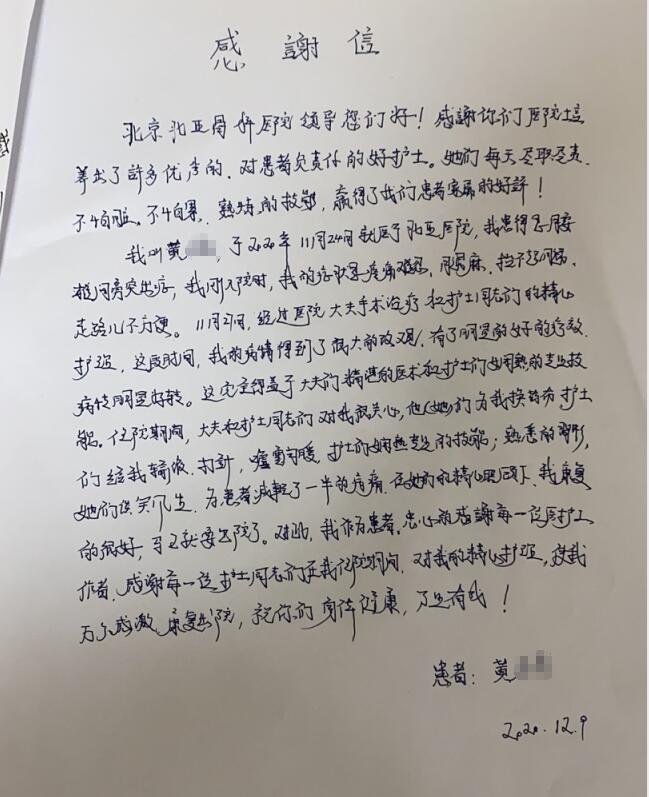 感謝信
北京北亚骨科医院领导您们好！感謝你们医院培
养出了許多优秀的、对患者负责任的好护士。她们每天尽职尽责.
不怕脏、不怕累、熟练的技能，赢得了我们患者家属的好評！
我叫黄 于2020年11月24日就医于北亚医院，我患得是腰
椎间盘突出症，我刚入院时，我的症状是疼痛难忍，腿麻、
走路儿不方便。11月2 日，经过医院大夫手术治疗和护士同志们的精心
护理，这段时间，我的病情得到了很大的改观，有了明显的好的疗效
病情明显好转。这完全得益于大夫们精湛的医术和护士们娴熟的专业技
能。住院期间，大夫和护士同志们对我很关心，他(她)们为我换药 护士
们给我输液、打针，嘘寒问暖，护士们娴熟专业的技能；熟悉的身形，
她们谈笑风生，为患者减轻了一半的疼痛。在她们的精心照顾下，我康复
的很好，马上就要出院了。对此，我作为患者，忠心的感謝每一位医护工
作者，感謝每一位护士同志们在我住院期间，对我的精心护理，使我
万分感激 康复出院，祝你们身体健康，
患者：黄
2020.12.9